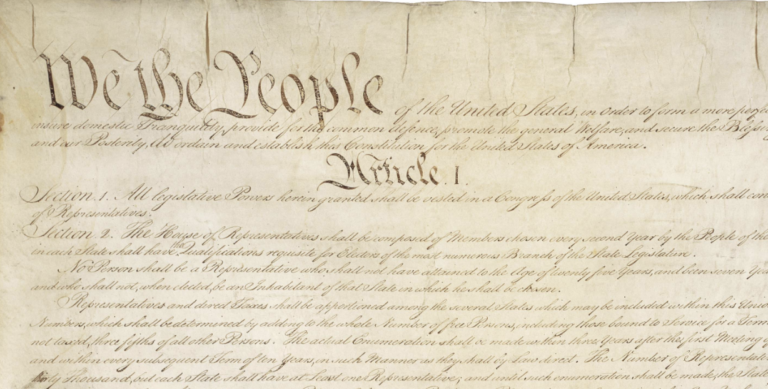 We the People of the United States, in Order to form a more perf
insure domestic Tranquility, provide for the common defence, promote the general Welfare, and secure the Blessin
and our Posterity, do ordain and establish this Constitution for the United States of America.
Article. I.
Section. 1. All legislative Powers herein granted shall be vested in a Congress of the United States, which shall con
of Representatives.
Section. 2. The House of Representatives shall be composed of Members chosen every second Year by the People of the
in each State shall have the Qualifications requisite for Electors of the most numerous Branch of the State Legislature.
No Person shall be a Representative who shall not have attained to the Age of twenty five Years, and been seven Yea
and who shall not, when elected, be an Inhabitant of that State in which he shall be chosen.
Representatives and direct Taxes shall be apportioned among the several States which may be included within this Union
Numbers, which shall be determined by adding to the whole Number of free Persons, including those bound to Service for a Term
not taxed, three fifths of all other Persons. The actual Enumeration shall be made within three Years after the first Meeting of
and within every subsequent Term of ten Years, in such Manner as they shall by Law direct. The Number of Representati
thirty Thousand, but each State shall have at Least one Representative; and until such enumeration shall be made, the State